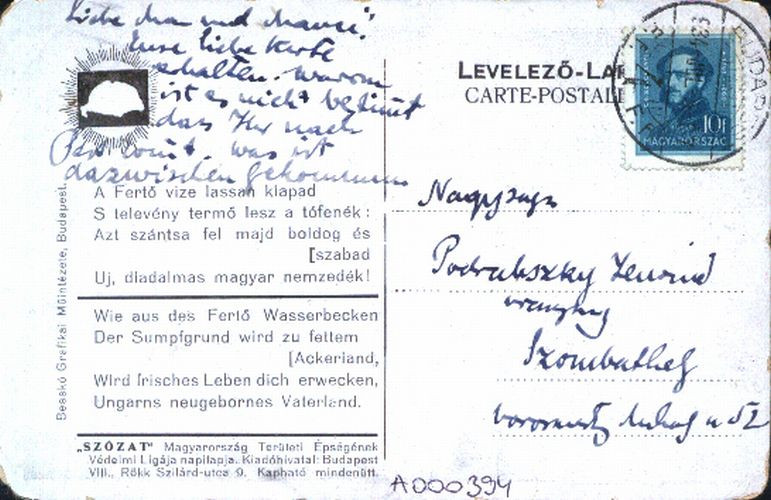 Liebe
liebe Karte
erhalten. warum
ist es nicht bestimmt
dass Ihr nach
kommt. was ist
dazwischen gekommen
A Fertő vize lassan klapad
S televény termő lesz a tófenék:
Azt szántsa fel majd boldog és
[szabad
Uj, diadalmas magyar nemzedék!
Wie aus des Fertő Wasserbecken
Der Sumpfgrund wird zu fettem
[Ackerland,
Wird frisches Leben dich erwecken,
Ungarns neugebornes Vaterland.
„SZÓZAT" Magyarország Területi Épségének
Védelmi Ligája napilapja. Kiadóhivatal: Budapest
VIII., Rökk Szilárd-utca 9. Kapható mindenütt.
Besskó Grafikai Műintézete, Budapest.
LEVELEZŐ-LA
CARTE-POSTALE
BUDAPEST
10f
MAGYARORSZÁG
Nagysága
Podrabszky
Szombathely
u 52
A000394